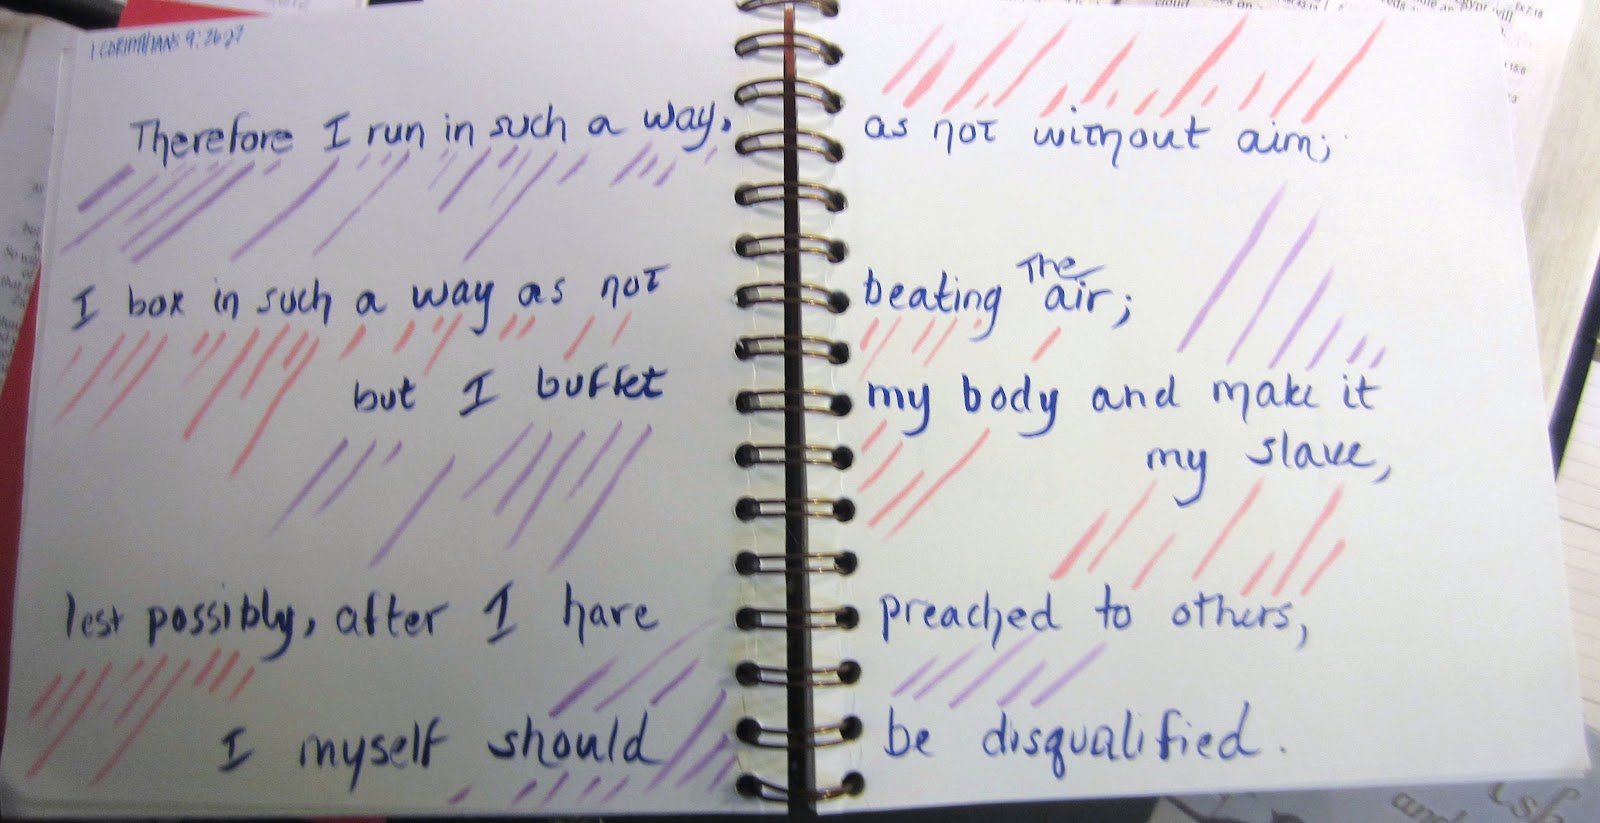 1 CORINTHIANS 9:26-27
Therefore I run in such a way, as not without aim;
I box in such a way as not beating the air;
but I buffet my body and make it
my slave,
lest possibly, after I have preached to others,
I myself should be disqualified.
cloud
and